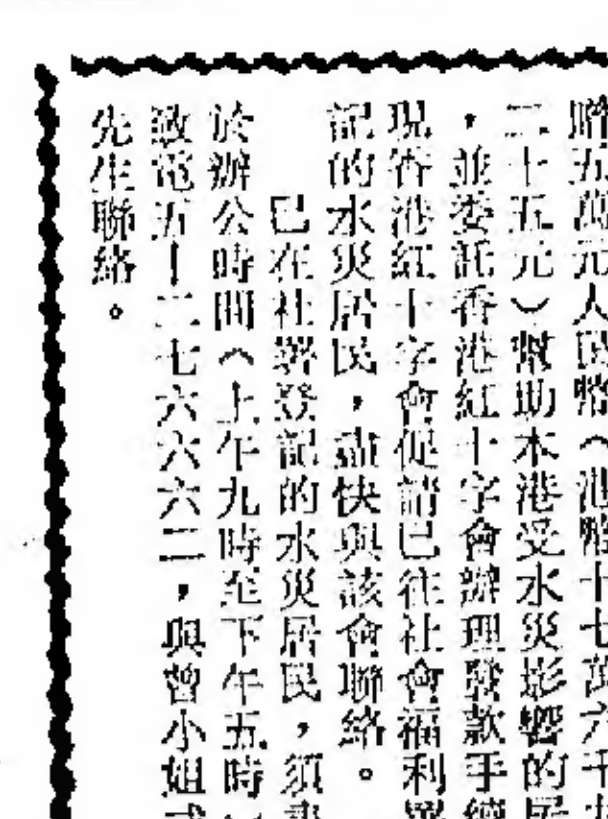 贈五萬元人民幣（港幣十七萬六千
二十五元）幫助本港受水災影響的居
，並委託香港紅十字會辦理發款手續
現香港紅十字會促請已往社會福利署
記的水災居民，盡快與該會聯絡。
已在社署登記的水災居民，須盡
於辦公時間（上午九時至下午五時
致電五—二七六六六二，與曾小姐或
先生聯絡。